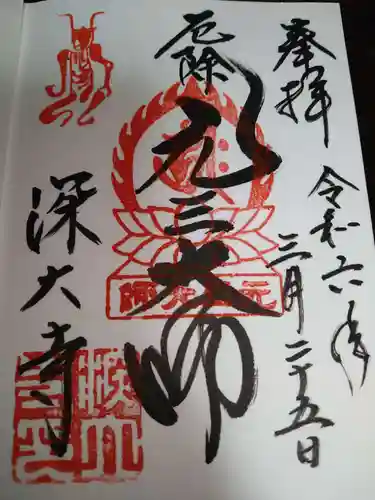 奉拝
令和六年
三月二十五日
厄除
元三大師
深大寺
元三大師